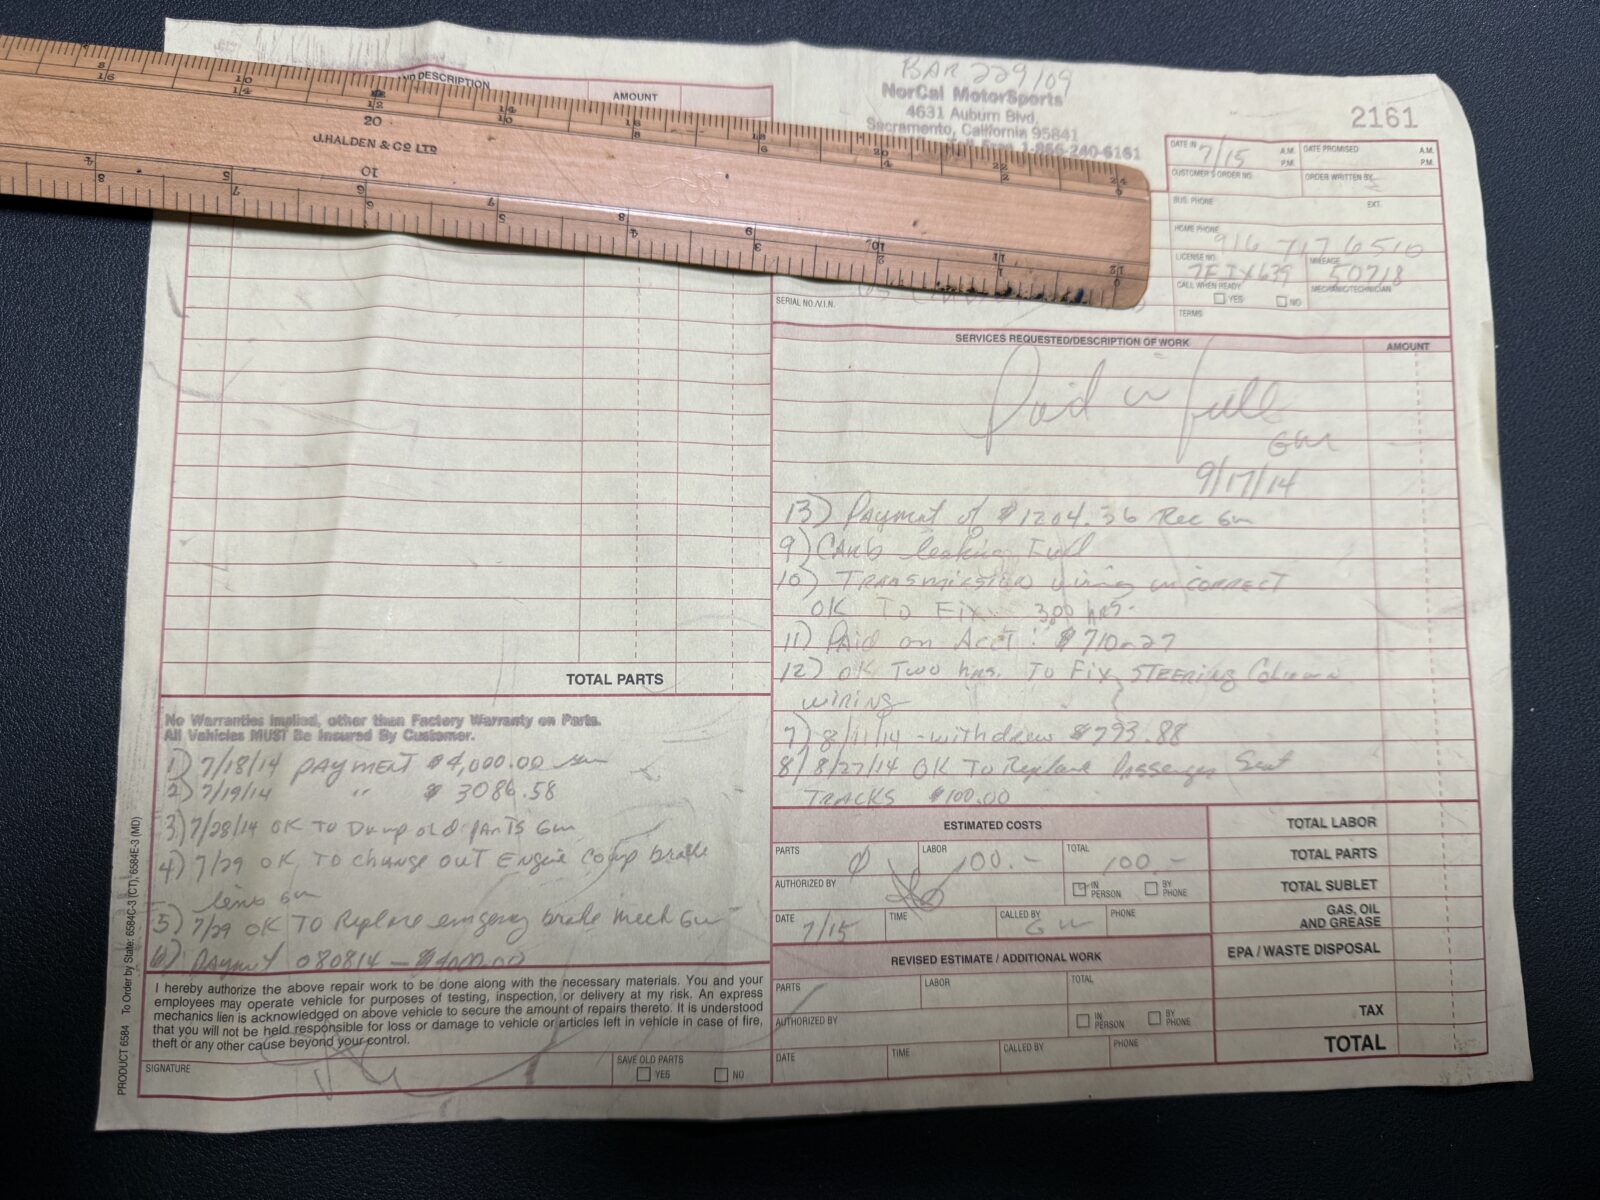 DESCRIPTION
AMOUNT
J.HALDEN & CO LTD
BAR 229109
NorCal MotorSports
4631 Auburn Blvd,
Sacramento, California 95841
1-866-240-6161
2161
DATE IN 7/15 A.M. P.M.
DATE PROMISED A.M. P.M.
CUSTOMER'S ORDER NO.
ORDER WRITTEN BY
BUS. PHONE EXT.
HOME PHONE 916 717 6510
LICENSE NO.
MILEAGE 50718
CALL WHEN READY YES NO
MECHANIC/TECHNICIAN
SERIAL NO./V.I.N.
TERMS
SERVICES REQUESTED/DESCRIPTION OF WORK AMOUNT
Paid in full
GW
9/17/14
13) Payment of $1204.36 Rec GW
9) CARb leaking Fuel
10) TRANSmission wiring incorrect
OK TO Fix 3.00 hRS.
11) PAid on Acct: $710.27
12) OK Two hRs. To Fix STEERING Column
wiRING
7) 8/11/14 - withdrew $793.88
8) 8/27/14 OK To Replace Passenger Seat
TRACKS $100.00
TOTAL PARTS
No Warranties Implied, other than Factory Warranty on Parts.
All Vehicles MUST Be Insured By Customer.
1) 7/18/14 PAYMENT $4,000.00
2) 7/19/14 " $3086.58
3) 7/28/14 OK TO Dump old PARTS GW
4) 7/29 OK TO change OUT Engine Comp brake
lines GW
5) 7/29 OK TO Replace emergency brake mech GW
6) PAyment 080814 — $4000.00
I hereby authorize the above repair work to be done along with the necessary materials. You and your
employees may operate vehicle for purposes of testing, inspection, or delivery at my risk. An express
mechanics lien is acknowledged on above vehicle to secure the amount of repairs thereto. It is understood
that you will not be held responsible for loss or damage to vehicle or articles left in vehicle in case of fire,
theft or any other cause beyond your control.
SIGNATURE
SAVE OLD PARTS YES NO
ESTIMATED COSTS
PARTS 0 LABOR 100.- TOTAL 100.-
AUTHORIZED BY IN PERSON BY PHONE
DATE 7/15 TIME CALLED BY GW PHONE
REVISED ESTIMATE / ADDITIONAL WORK
PARTS LABOR TOTAL
AUTHORIZED BY IN PERSON BY PHONE
DATE TIME CALLED BY PHONE
TOTAL LABOR
TOTAL PARTS
TOTAL SUBLET
GAS, OIL
AND GREASE
EPA / WASTE DISPOSAL
TAX
TOTAL
PRODUCT 6584 To Order by State: 6584C-3 (CT), 6584E-3 (MD)